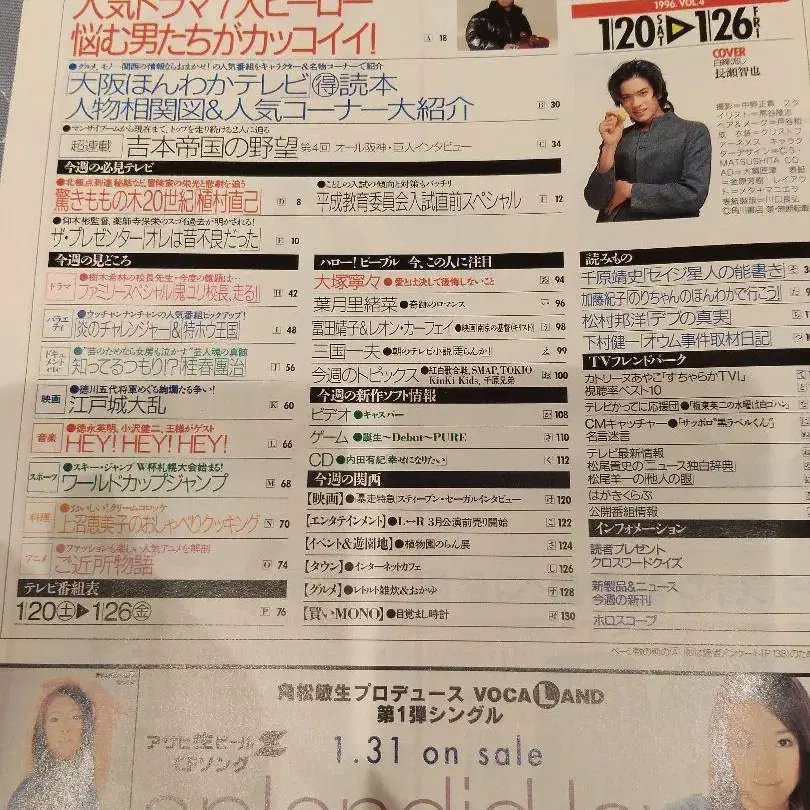 人気ドラマ7人ヒーロー
悩む男たちがカッコイイ!
A 18
大阪ほんわかテレビ㊝読本
人物相関図&人気コーナー大紹介
B 30
●マンザイブームから現在まで、トップを走り続ける2人に迫る
超連載 吉本帝国の野望 第4回 オール阪神・巨人インタビュー
C 34
今週の必見テレビ
●北極点到達秘話など、冒険家の栄光と悲劇を追う
驚きももの木20世紀「植村直己」
D 8
●仰木彬監督、薬師寺保栄のスゴイ過去が明かされる!
ザ・プレゼンター「オレは昔不良だった」
E 10
●ことしの入試の傾向と対策もバッチリ
平成教育委員会入試直前スペシャル
F 12
今週の見どころ
ドラマ
●樹木希林の校長先生・今度の難題は…
ファミリースペシャル「鬼ユリ校長、走る!」
H 42
バラエティ
●ウッチャンナンチャンの人気番組ヒットアップ
炎のチャレンジャー&特ホウ王国
I 48
ドキュメントetc
●"芸のためなら女房も泣かす"芸人魂の真髄
知ってるつもり!?「桂春團治」
J 56
映画
●徳川五代将軍めぐる絢爛たる争い!
江戸城大乱
K 60
音楽
●徳永英明、小沢健二、王様がゲスト
HEY!HEY!HEY!
L 66
スポーツ
●スキー・ジャンプW杯札幌大会始まる!
ワールドカップジャンプ
M 68
料理
●おいしい!クリームコロッケ
上沼恵美子のおしゃべりクッキング
N 70
アニメ
●ファッションも楽しい人気アニメを解剖
ご近所物語
O 74
テレビ番組表
1/20㊏▶1/26㊎
P 76
ハロー!ピープル 今、この人に注目
大塚寧々 ●愛とは決して後悔しないこと
94
葉月里緒菜 ●奇跡のロマンス
96
富田靖子&レオン・カーフェイ ●映画「南京の基督(キリスト)」
98
三国一夫 ●朝のテレビ小説「走らんか!」
99
今週のトピックス ●紅白歌合戦、SMAP、TOKIO
KinKi Kids、千原兄弟
100
今週の新作ソフト情報
ビデオ ●キャスパー
108
ゲーム ●誕生〜Debut〜PURE
110
CD ●内田有紀「幸せになりたい」
112
今週の関西
【映画】●「暴走特急」スティーブン・セーガルインタビュー
120
【エンタテインメント】●L⇔R 3月公演前売り開始
122
【イベント&遊園地】●植物園のらん展
124
【タウン】●インターネットカフェ
126
【グルメ】●レトルト雑炊&おかゆ
128
【買いMONO】●目覚まし時計
130
1996. VOL.4
1/20 SAT▶1/26 FRI
COVER
長瀬智也
撮影=中野正貴 スタ
MATSUSHITA CO
読みもの
千原靖史「セイジ星人の能書き」
加藤紀子「のりちゃんのほんわかで行こう」
松村邦洋「デブの真実」
下村健一「オウム事件取材日記」
TVフレンドパーク
カトリーヌあやこ「すちゃらかTV!」
視聴率ベスト10
テレビかってに応援団 ●「板東英二の水曜は白ゴハン」
CMキャッチャー ●「サッポロ"黒ラベルくん"」
名言迷言
テレビ最新情報
松尾貴史の「ニュース独白辞典」
松尾羊一の「他人の眼」
はがきくらぶ
公開番組情報
インフォメーション
読者プレゼント
クロスワードクイズ
新製品&ニュース
今週の新刊
ホロスコープ
角松敏生プロデュース VOCALAND
第1弾シングル
アサヒ生ビールZ
CMソング
1.31 on sale